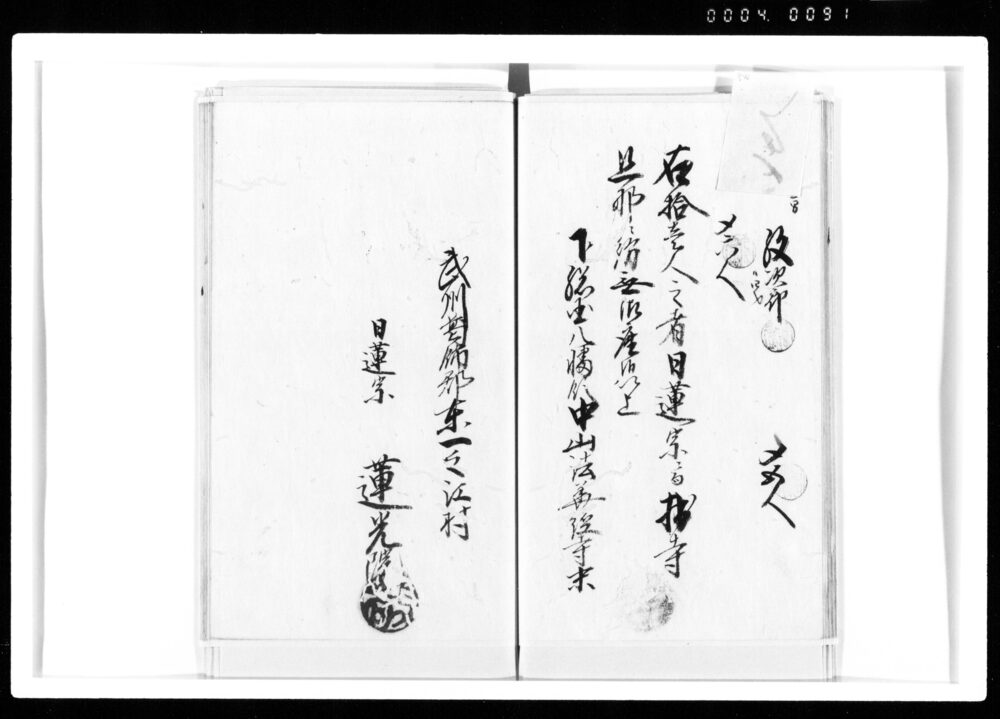 0004.0091
〆五人
〆六人
右拾壱人之者日蓮宗ニ而拙寺
旦那ニ紛無御座候以上
下総国八幡領中山法華経寺末
武州葛飾郡東一之江村
日蓮宗
蓮光院